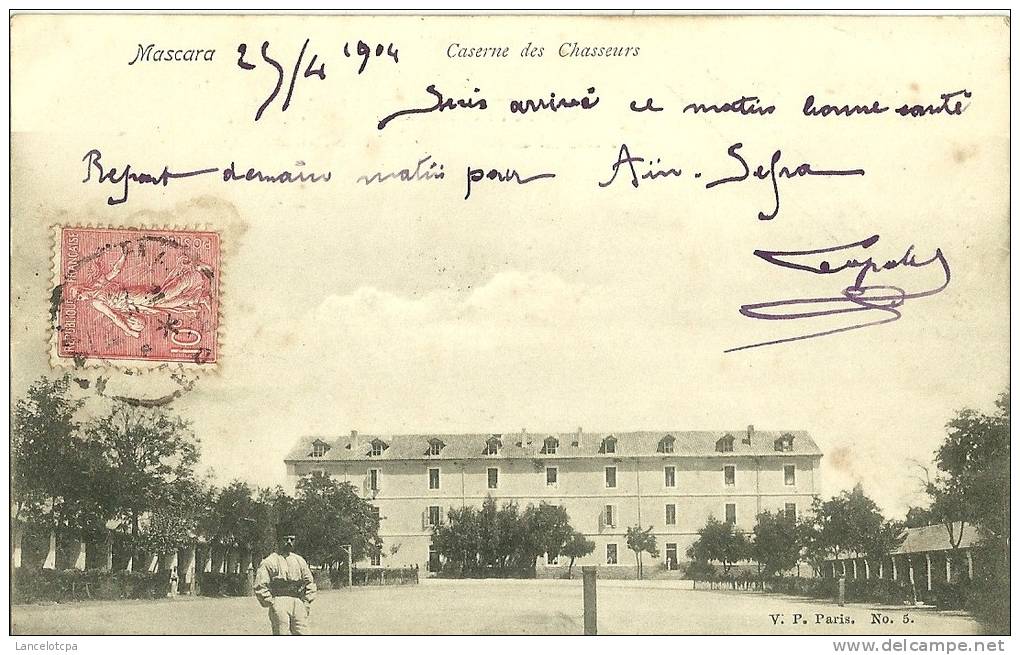 Mascara 25/4 1904 Caserne des Chasseurs
Suis arrivé ce matin bonne santé
Repart demain matin pour Aïn-Sefra
Leopold
POSTES
REPUBLIQUE FRANÇAISE
10
V. P. Paris. No. 5.
Lancelotcpa
www.delcampe.net